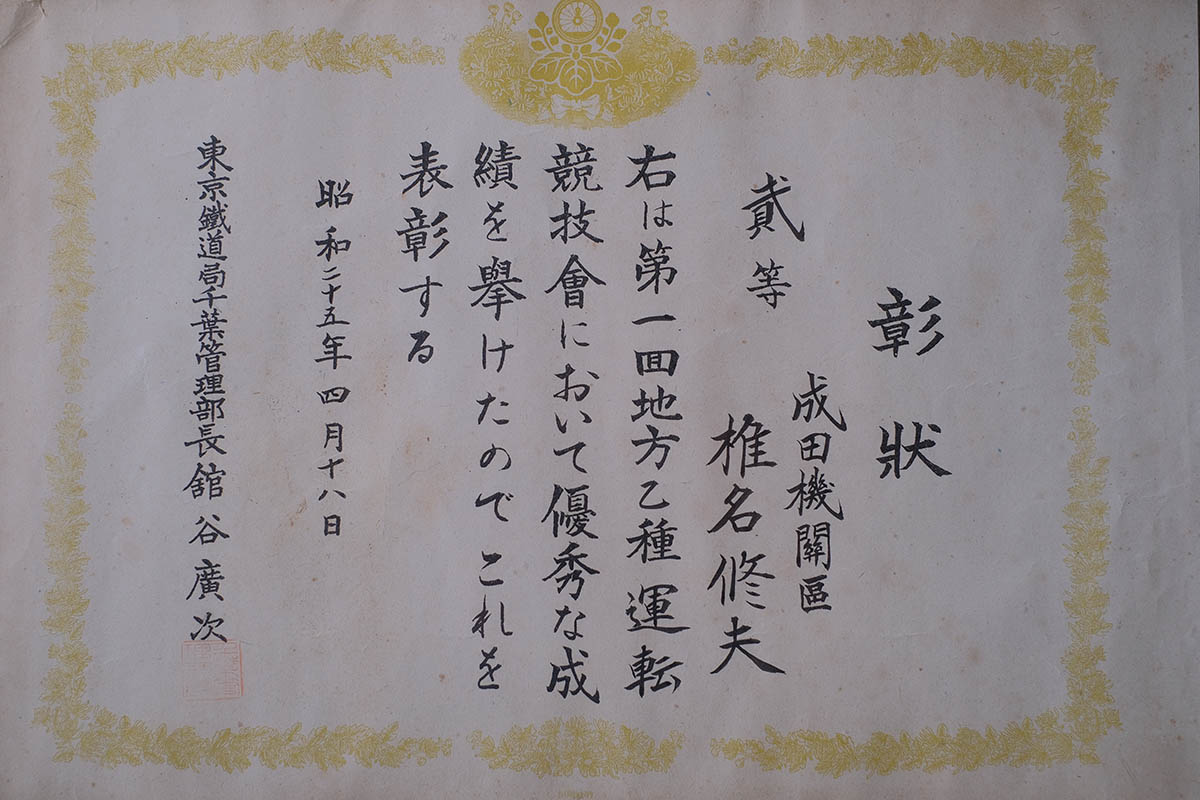 彰狀
成田機關區
貳等 椎名修夫
右は第一回地方乙種運転
競技會において優秀な成
績を擧けたのでこれを
表彰する
昭和二十五年四月十八日
東京鐵道局千葉管理部長舘谷廣次